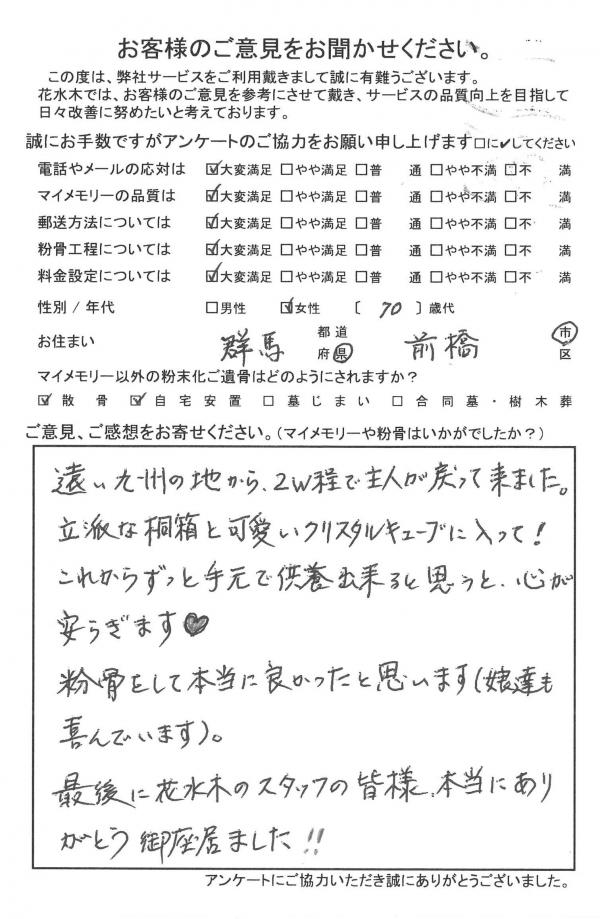 お客様のご意見をお聞かせください。
この度は、弊社サービスをご利用戴きまして誠に有難うございます。
花水木では、お客様のご意見を参考にさせて戴き、サービスの品質向上を目指して
日々改善に努めたいと考えております。
誠にお手数ですがアンケートのご協力をお願い申し上げます□に✔してください
電話やメールの応対は ☑大変満足 □やや満足 □普 通 □やや不満 □不 満
マイメモリーの品質は ☑大変満足 □やや満足 □普 通 □やや不満 □不 満
郵送方法については ☑大変満足 □やや満足 □普 通 □やや不満 □不 満
粉骨工程については ☑大変満足 □やや満足 □普 通 □やや不満 □不 満
料金設定については ☑大変満足 □やや満足 □普 通 □やや不満 □不 満
性別 / 年代 □男性 ☑女性 〔 70 〕歳代
お住まい 群馬 都道府県 前橋 市区
マイメモリー以外の粉末化ご遺骨はどのようにされますか？
☑ 散骨 ☑ 自宅安置 □ 墓じまい □ 合同墓・樹木葬
ご意見、ご感想をお寄せください。(マイメモリーや粉骨はいかがでしたか？)
遠い九州の地から、2W程で主人が戻って来ました。
立派な桐箱と可愛いクリスタルキューブに入って！
これからずっと手元で供養出来ると思うと、心が
安らぎます♥
粉骨をして本当に良かったと思います(娘達も
喜んでいます)。
最後に花水木のスタッフの皆様、本当にあり
がとう御座居ました!!
アンケートにご協力いただき誠にありがとうございました。